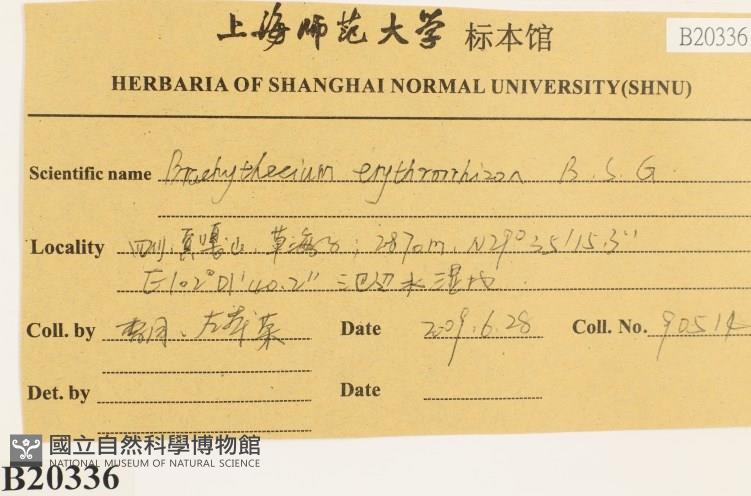 上海师范大学 标本馆
B20336
HERBARIA OF SHANGHAI NORMAL UNIVERSITY(SHNU)
Scientific name Brachythecium erythrorrhizon B.S.G
Locality 四川,贡嘎山,草海子; 2870m, N29°35'15.3"
E102°01'40.2"
Coll. by Date 2009.6.28 Coll. No. 90514
Det. by Date
國立自然科學博物館
NATIONAL MUSEUM OF NATURAL SCIENCE
B20336